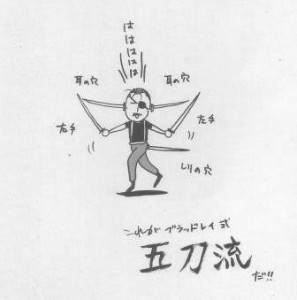 はははははは
耳の穴
耳の穴
右手
左手
しりの穴
これがブラッドレイ式
五刀流
だ!!